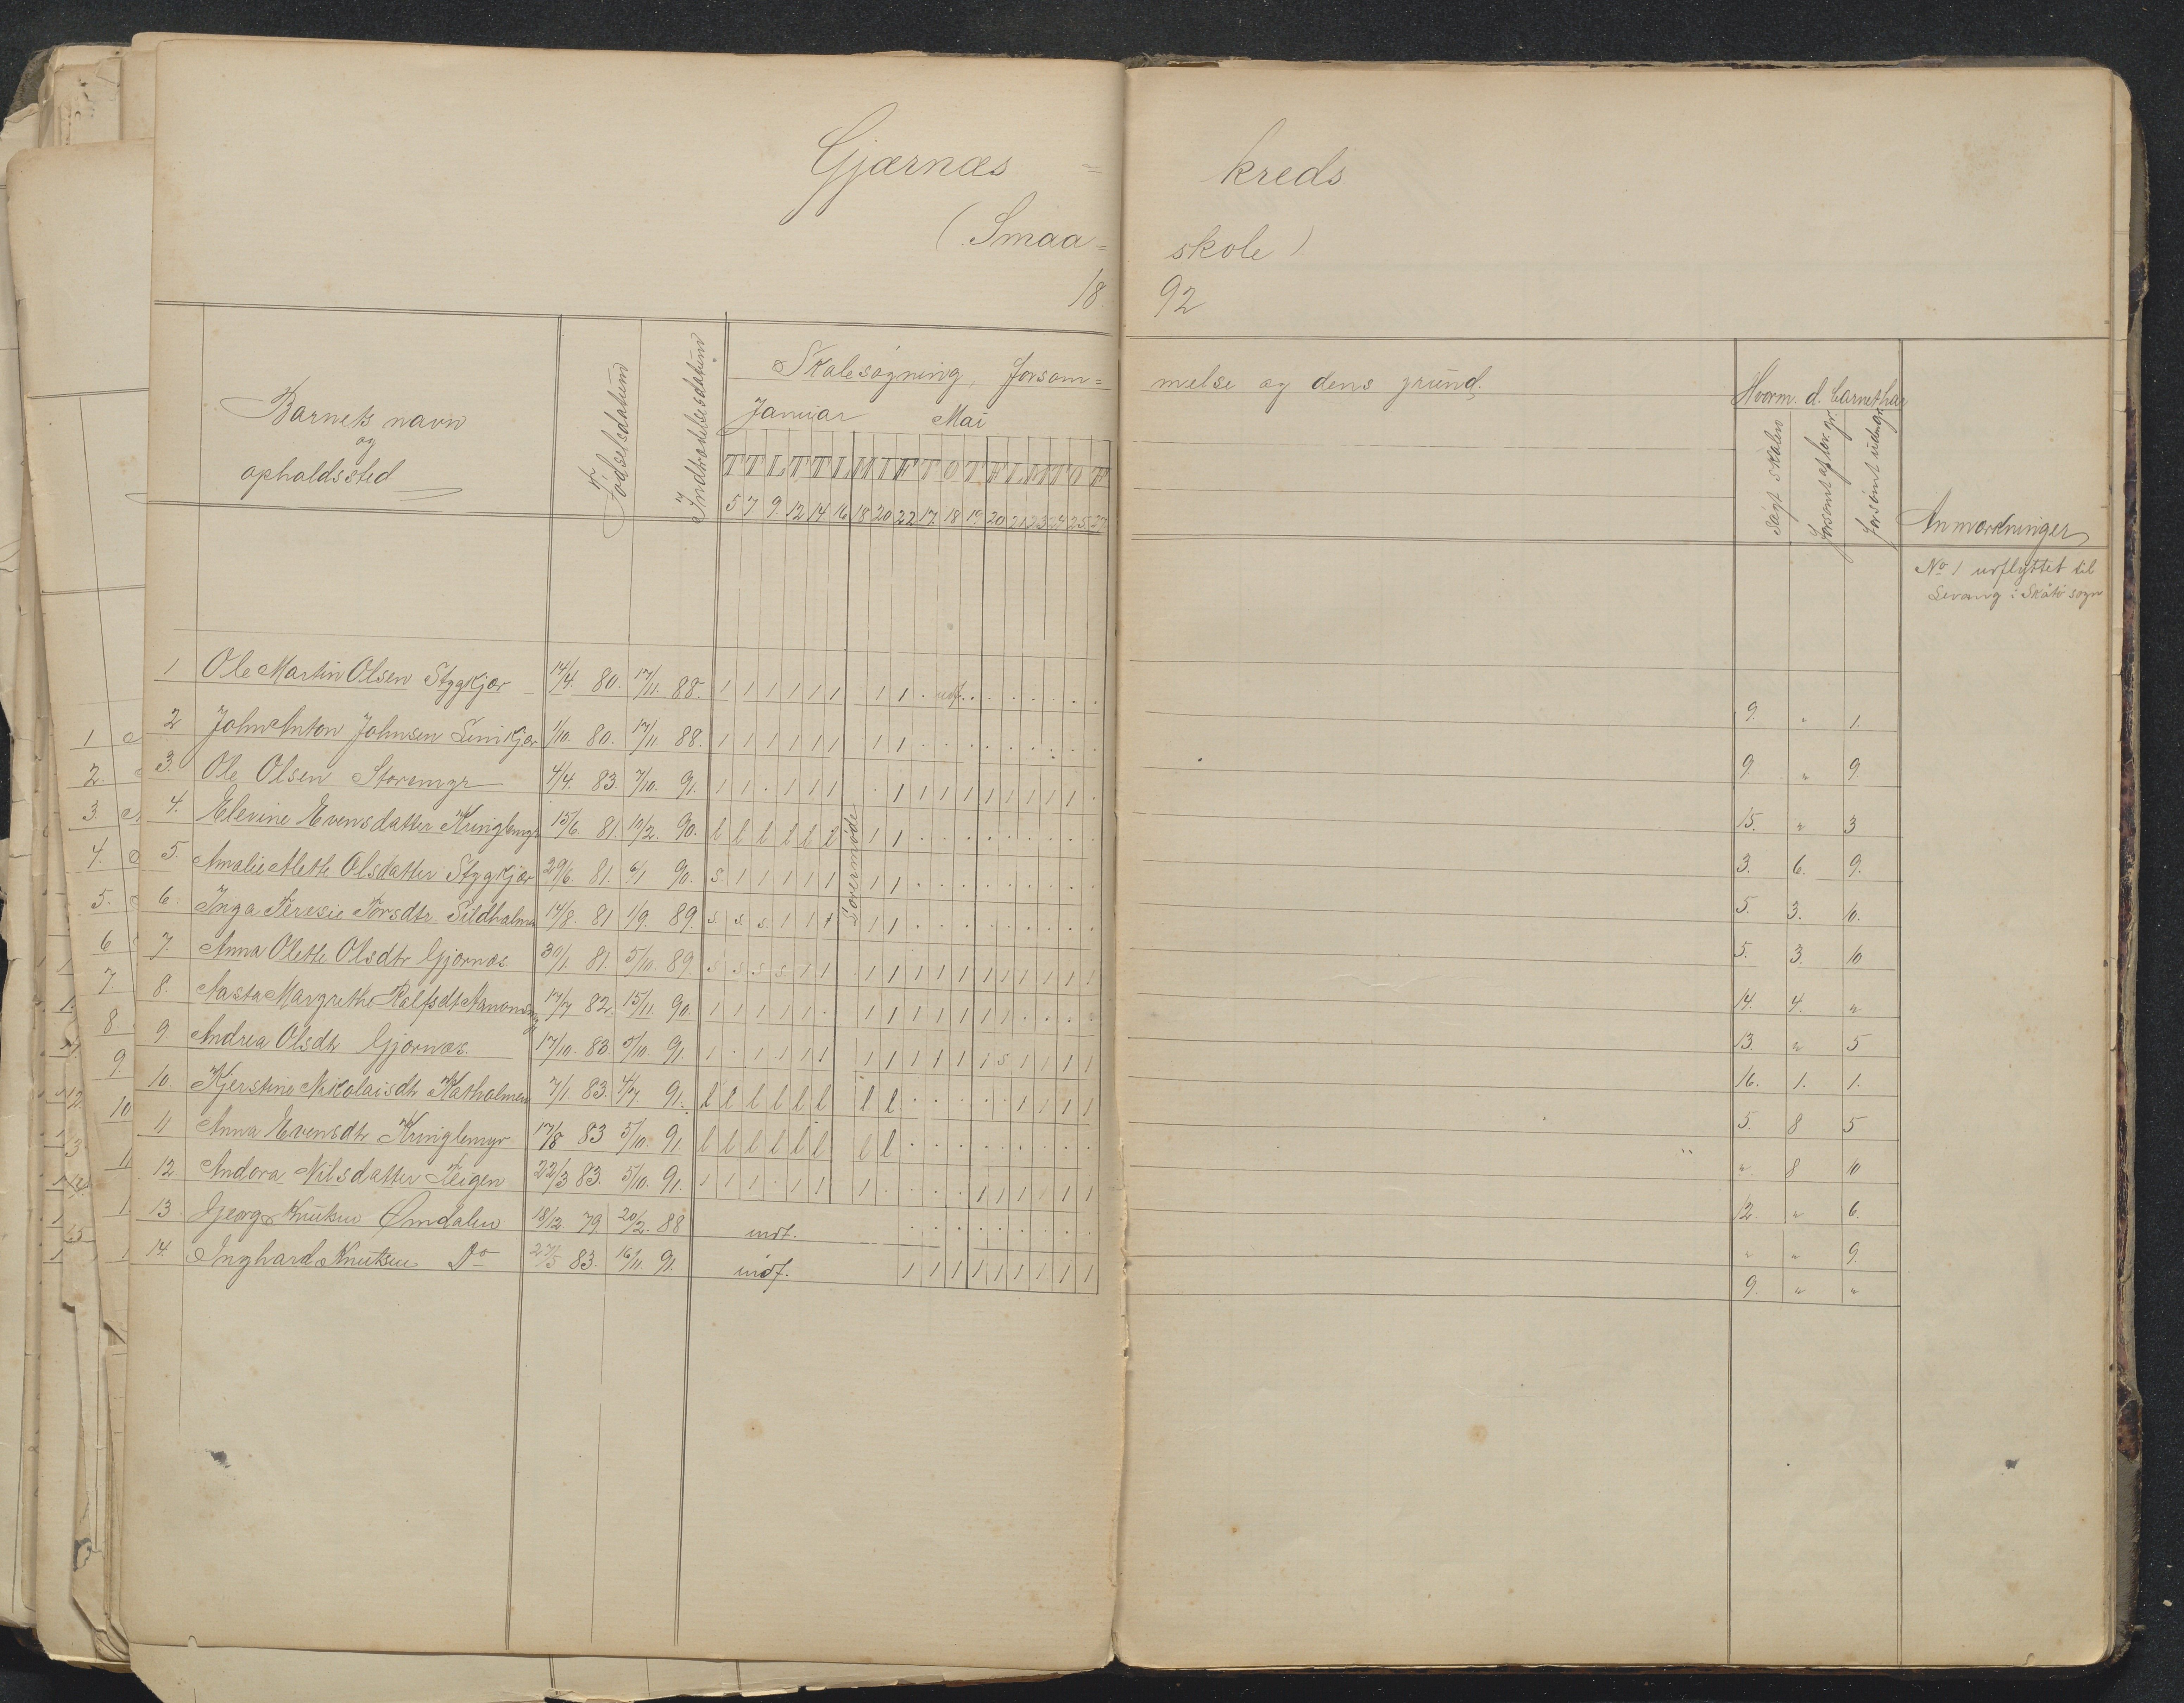 Gjærnæs = kreds
(Smaa= skole)
18 92
Barnets navn
og
opholdssted
Fødselsdatum
Indtrædelsesdatum
Skolesøgning, forsøm= melse og dens grund.
Januar Mai
T T L T T L M I F T O T F L M T O F
5 7 9 12 14 16 18 20 22 17 18 19 20 21 23 24 25 27
Hvorm. d. barnet har
søgt skolen
forsømt af lov. gr.
forsømt uden gr.
Anmærkninger
No 1 udflyttet til
Levang i Skåtø sogn
Lovermøde
1 Ole Martin Olsen Stygkjær 14/4. 80. 17/11. 88. 1 1 1 1 1 1 1 1 . udf. . . . . . . . 9. " 1.
2 John Anton Johnsen Limkjær 1/10. 80. 17/11. 88. 1 1 1 1 1 1 1 1 . . . . . . . . . 9. " 9.
3. Ole Olsen Storemyr 4/4. 83. 7/10. 91. 1 1 . 1 1 1 . 1 1 1 1 1 1 1 1 1 . 15. " 3
4. Elevine Evensdatter Kringlemyr 15/6. 81. 10/2. 90. l l l l l l 1 1 . . . . . . . . . 3. 6. 9.
5. Amalie Alette Olsdatter Stygkjær 29/6 81. 6/1 90. s. 1 1 1 1 1 1 1 . . . . . . . . . 5. 3. 10.
6. Inga Teresie Torsdtr. Sildholmen 14/8. 81 1/9. 89. s. s. s. 1 1 1 1 1 . . . . . . . . . 5. 3. 10
7 Anna Olette Olsdtr Gjærnæs 30/1. 81. 5/10. 89. s s s s. 1 1 1 1 1 1 1 1 1 1 1 1 1 14. 4. "
8. Aasta Margrethe Ralfsdt 17/7 82. 15/11. 90. 1 1 1 1 1 . 1 1 1 1 1 1 1 . . . . 13. " 5
9. Andrea Olsdtr Gjærnæs. 17/10. 83. 5/10. 91. 1 . 1 1 1 1 1 1 1 1 1 1 s 1 1 1 1 16. 1. 1.
10. Kjerstine Nikolaisdtr Katholmen 7/1. 83. 4/7 91. l l l l l l l l . . . . . 1 1 1 1 5. 8 5
11 Anna Evensdtr Kringlemyr 17/8 83 5/10. 91 l l l l l l l l . . . . . . . . . " 8 10
12 Andora Nilsdatter Teigen 22/3 83. 5/10. 91. 1 1 1 . 1 1 1 . . . . 1 1 1 1 1 1 12. " 6.
13. Georg Knutsen Omdalen 18/12. 79. 20/2. 88 indt. . . . . . . . . . " " 9.
14. Inghard Knutsen Do 27/5 83. 16/11. 91. indf. 1 1 1 1 1 1 1 1 1 9. " "